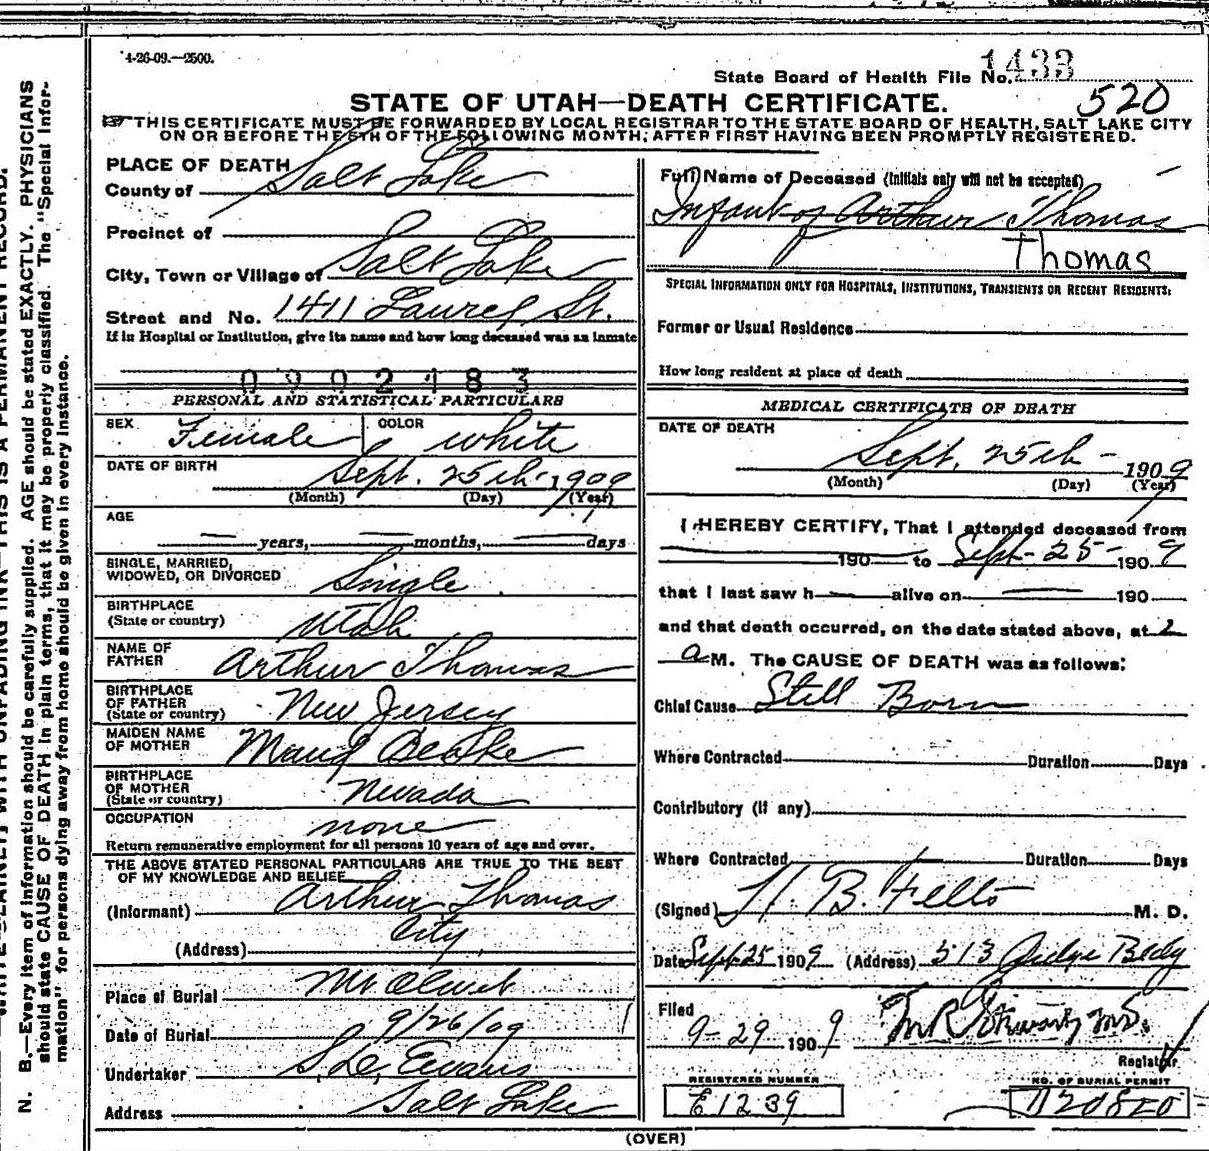 4-26-09.—2500.
State Board of Health File No. 1433
520
STATE OF UTAH—DEATH CERTIFICATE.
THIS CERTIFICATE MUST BE FORWARDED BY LOCAL REGISTRAR TO THE STATE BOARD OF HEALTH, SALT LAKE CITY
ON OR BEFORE THE 5TH OF THE FOLLOWING MONTH, AFTER FIRST HAVING BEEN PROMPTLY REGISTERED.
PLACE OF DEATH
County of Salt Lake
Precinct of
City, Town or Village of Salt Lake
Street and No. 1411 Laurel St.
If in Hospital or Institution, give its name and how long deceased was an inmate
0902183
PERSONAL AND STATISTICAL PARTICULARS
SEX Female COLOR white
DATE OF BIRTH Sept. 25th 1909
(Month) (Day) (Year)
AGE
years, months, days
SINGLE, MARRIED,
WIDOWED, OR DIVORCED Single
BIRTHPLACE
(State or country) Utah
NAME OF
FATHER Arthur Thomas
BIRTHPLACE
OF FATHER
(State or country) New Jersey
MAIDEN NAME
OF MOTHER Maud
BIRTHPLACE
OF MOTHER
(State or country) Nevada
OCCUPATION none
Return remunerative employment for all persons 10 years of age and over.
THE ABOVE STATED PERSONAL PARTICULARS ARE TRUE TO THE BEST
OF MY KNOWLEDGE AND BELIEF
(Informant) Arthur Thomas
(Address) City
Place of Burial Mt Olivet
Date of Burial 9/26/09
Undertaker S. D. Evans
Address Salt Lake
Full Name of Deceased (Initials only will not be accepted)
Infant of Arthur Thomas
Thomas
SPECIAL INFORMATION ONLY FOR HOSPITALS, INSTITUTIONS, TRANSIENTS OR RECENT RESIDENTS:
Former or Usual Residence
How long resident at place of death
MEDICAL CERTIFICATE OF DEATH
DATE OF DEATH
Sept. 25th - 1909
(Month) (Day) (Year)
I HEREBY CERTIFY, That I attended deceased from
190 to Sept-25- 1909
that I last saw h alive on 190
and that death occurred, on the date stated above, at 2
a M. The CAUSE OF DEATH was as follows:
Chief Cause Still Born
Where Contracted Duration Days
Contributory (if any)
Where Contracted Duration Days
(Signed) H. B. Felts M. D.
Date Sept 25 1909 (Address) 513 Judge Bldg
Filed
9-29 1909
Registrar
REGISTERED NUMBER
E1239
NO. OF BURIAL PERMIT
(OVER)
N. B.—Every item of information should be carefully supplied. AGE should be stated EXACTLY. PHYSICIANS
should state CAUSE OF DEATH in plain terms, that it may be properly classified. The "Special Infor-
mation" for persons dying away from home should be given in every instance.
WITH UNFADING INK—THIS IS A PERMANENT RECORD.